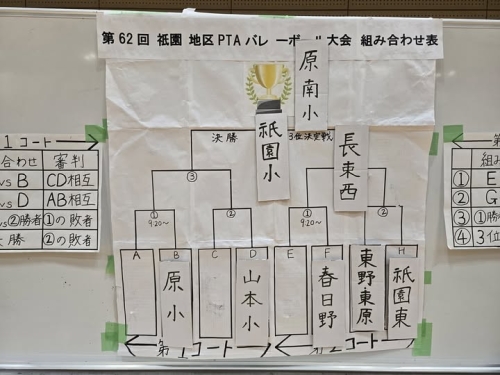 第62回 祇園 地区PTAバレーボール大会 組み合わせ表
原南小
祇園小
決勝
3位決定戦
長東西
③
① 9:20〜
②
① 9:20〜
②
A
B
C
D
E
F
H
原小
山本小
春日野
東野・東原
祇園東
第1コート
第2コート
1コート
合わせ 審判
vs B CD相互
vs D AB相互
vs②勝者 ①の敗者
決勝 ②の敗者
第
組み
① E
② G
③ ①勝
④ 3位